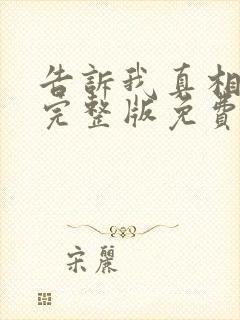 告訴我真相
完整版免費
宋麗